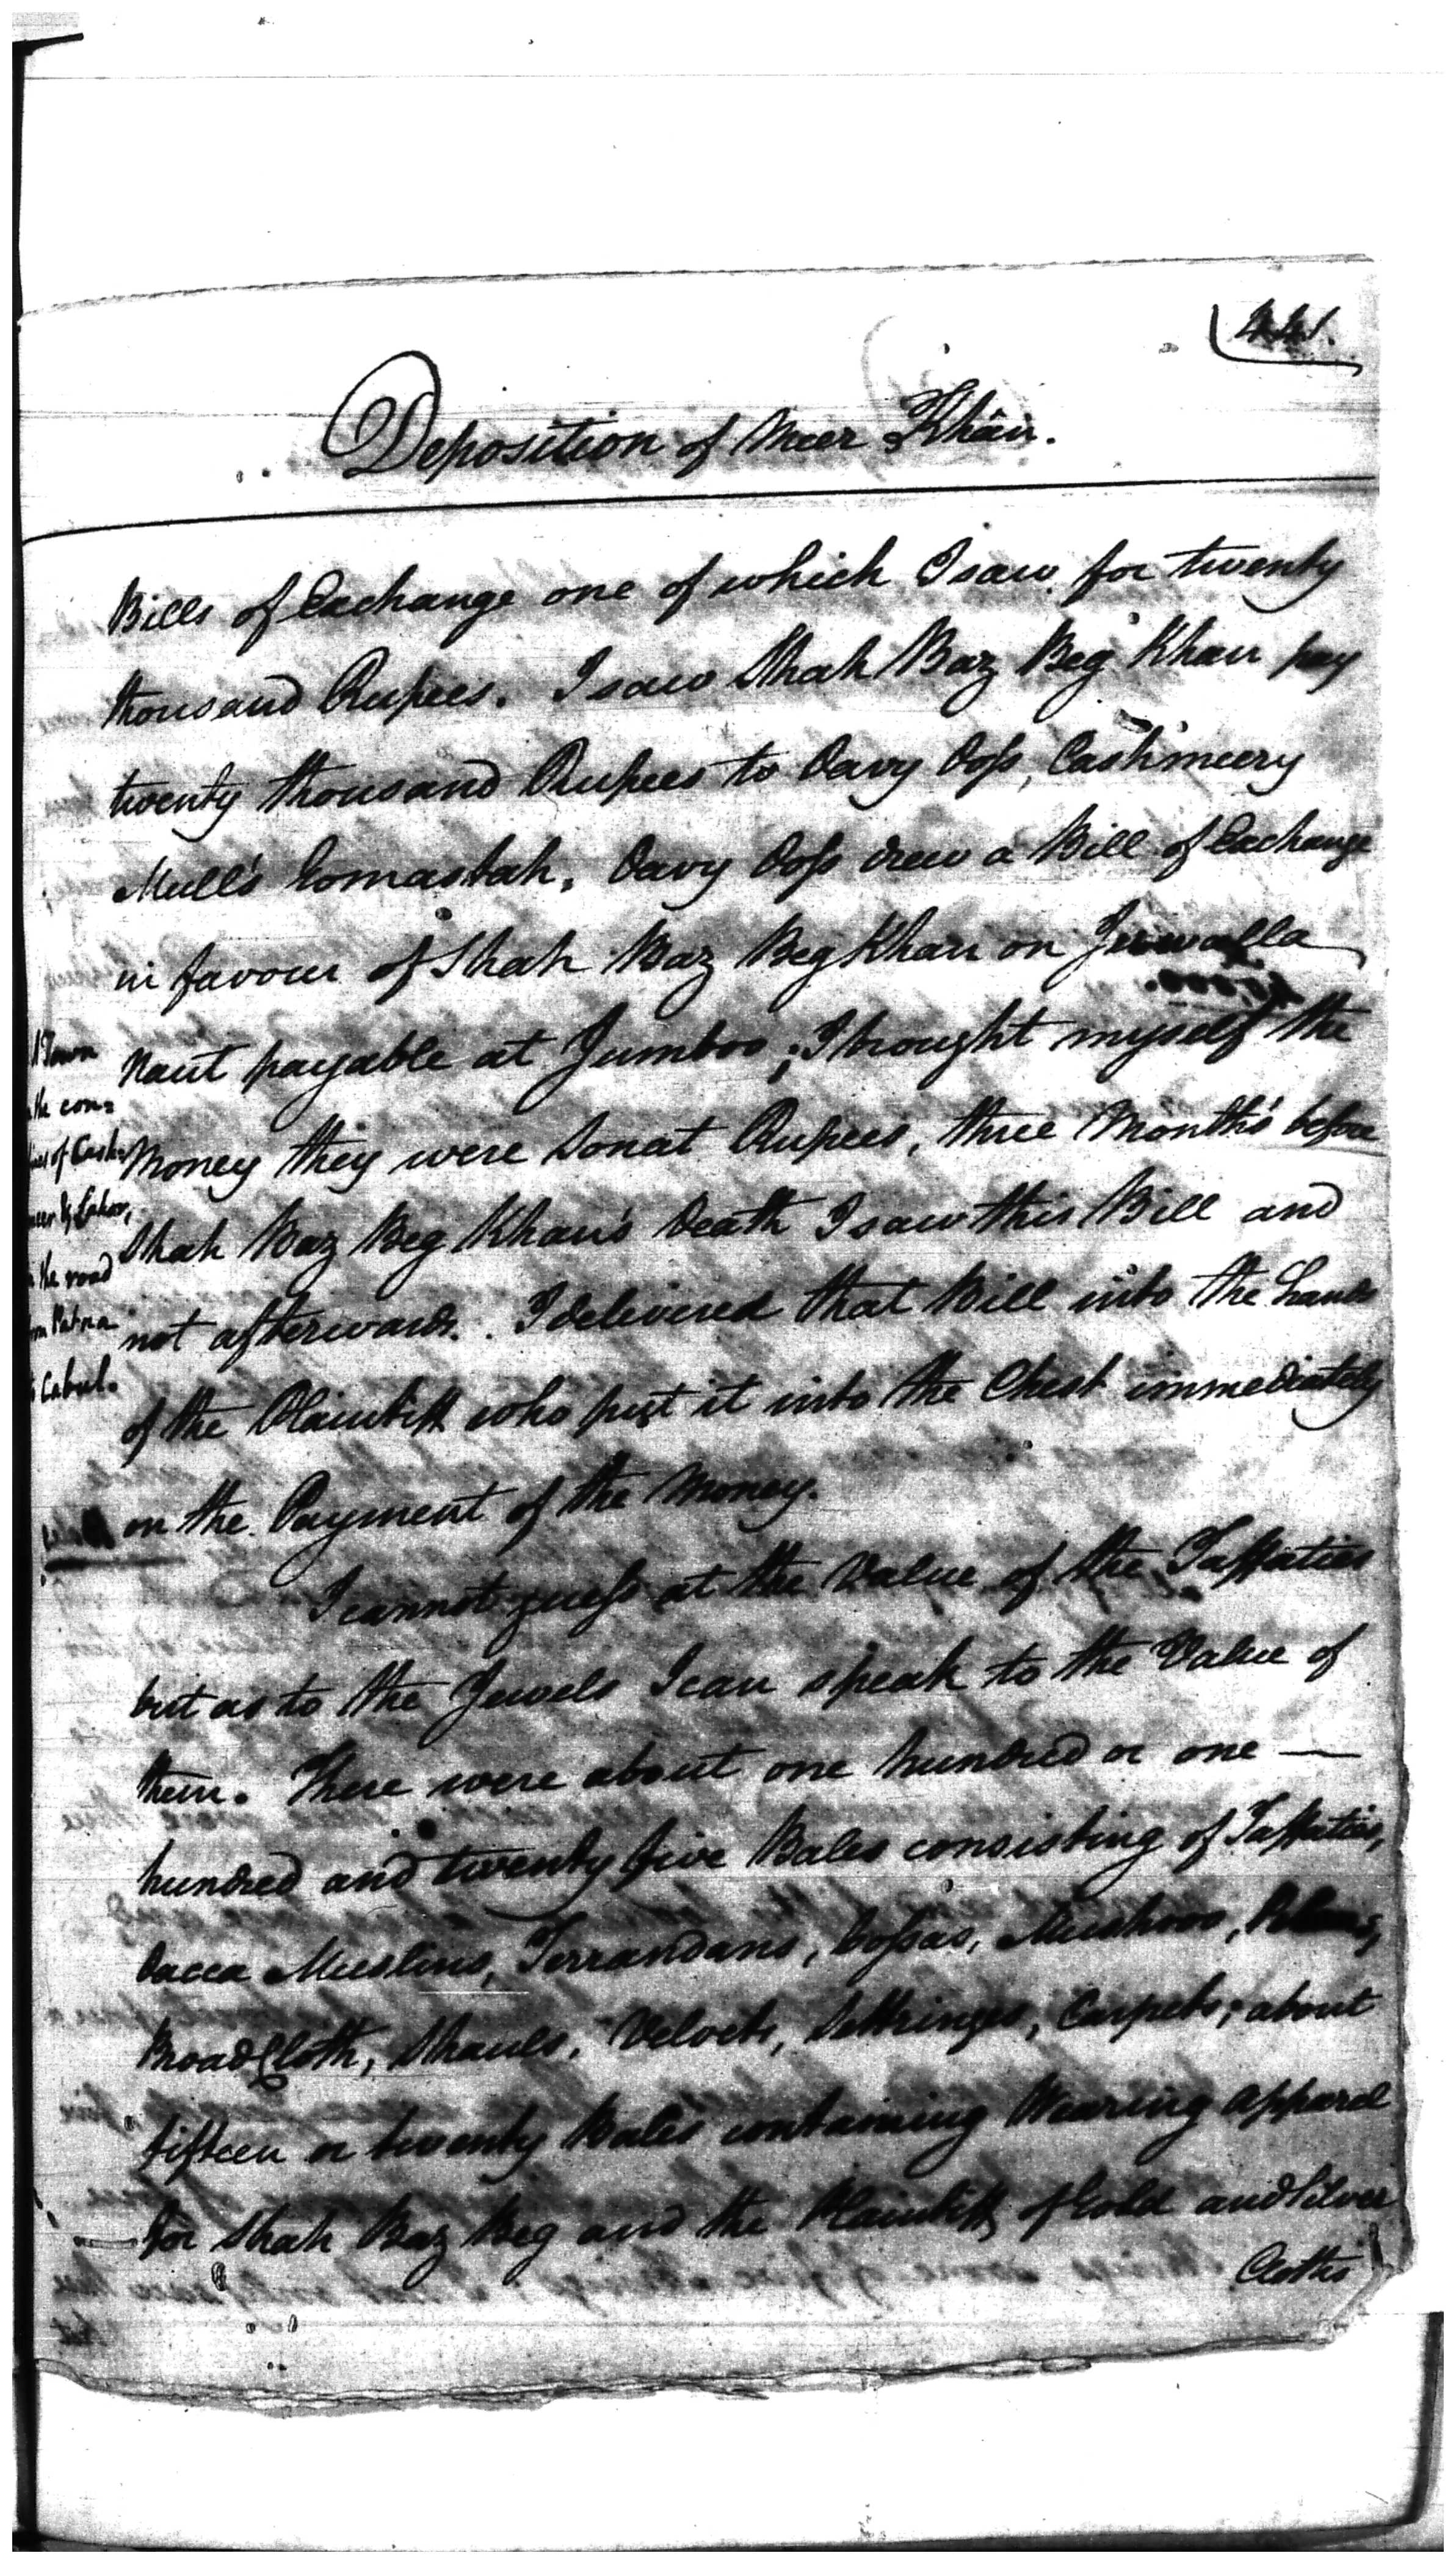 441.
Deposition of Meer Khân.
Bills of Exchange one of which I saw for twenty
thousand Rupees. I saw Shah Baz Beg Khan pay
twenty thousand Rupees to Davy Doss, Cashmeery
Mull's Gomastah. Davy Doss drew a Bill of Exchange
in favour of Shah Baz Beg Khan on Juwalla
Naut payable at Jumboo; I brought myself the
Money they were Sonat Rupees, three Months before
Shah Baz Beg Khan's Death I saw this Bill and
not afterwards. I delivered that Bill into the hands
of the Plaintiff who put it into the Chest immediately
on the Payment of the Money.
A Town
the con=
fines of Cash=
meer & Lahor,
the road
from Patna
to Cabul.
I cannot guess at the Value of the Taffaties
but as to the Jewels I can speak to the Value of
them. There were about one hundred or one —
hundred and twenty five Bales consisting of Taffaties,
Dacca Muslins, Terrandans, Cossas, Mushroos,
Broad Cloth, Shauls, Velvets, Settringes, Carpets; about
fifteen or twenty Bales containing Wearing Apparel
for Shah Baz Beg and the Plaintiff, of Gold and Silver
Cloths